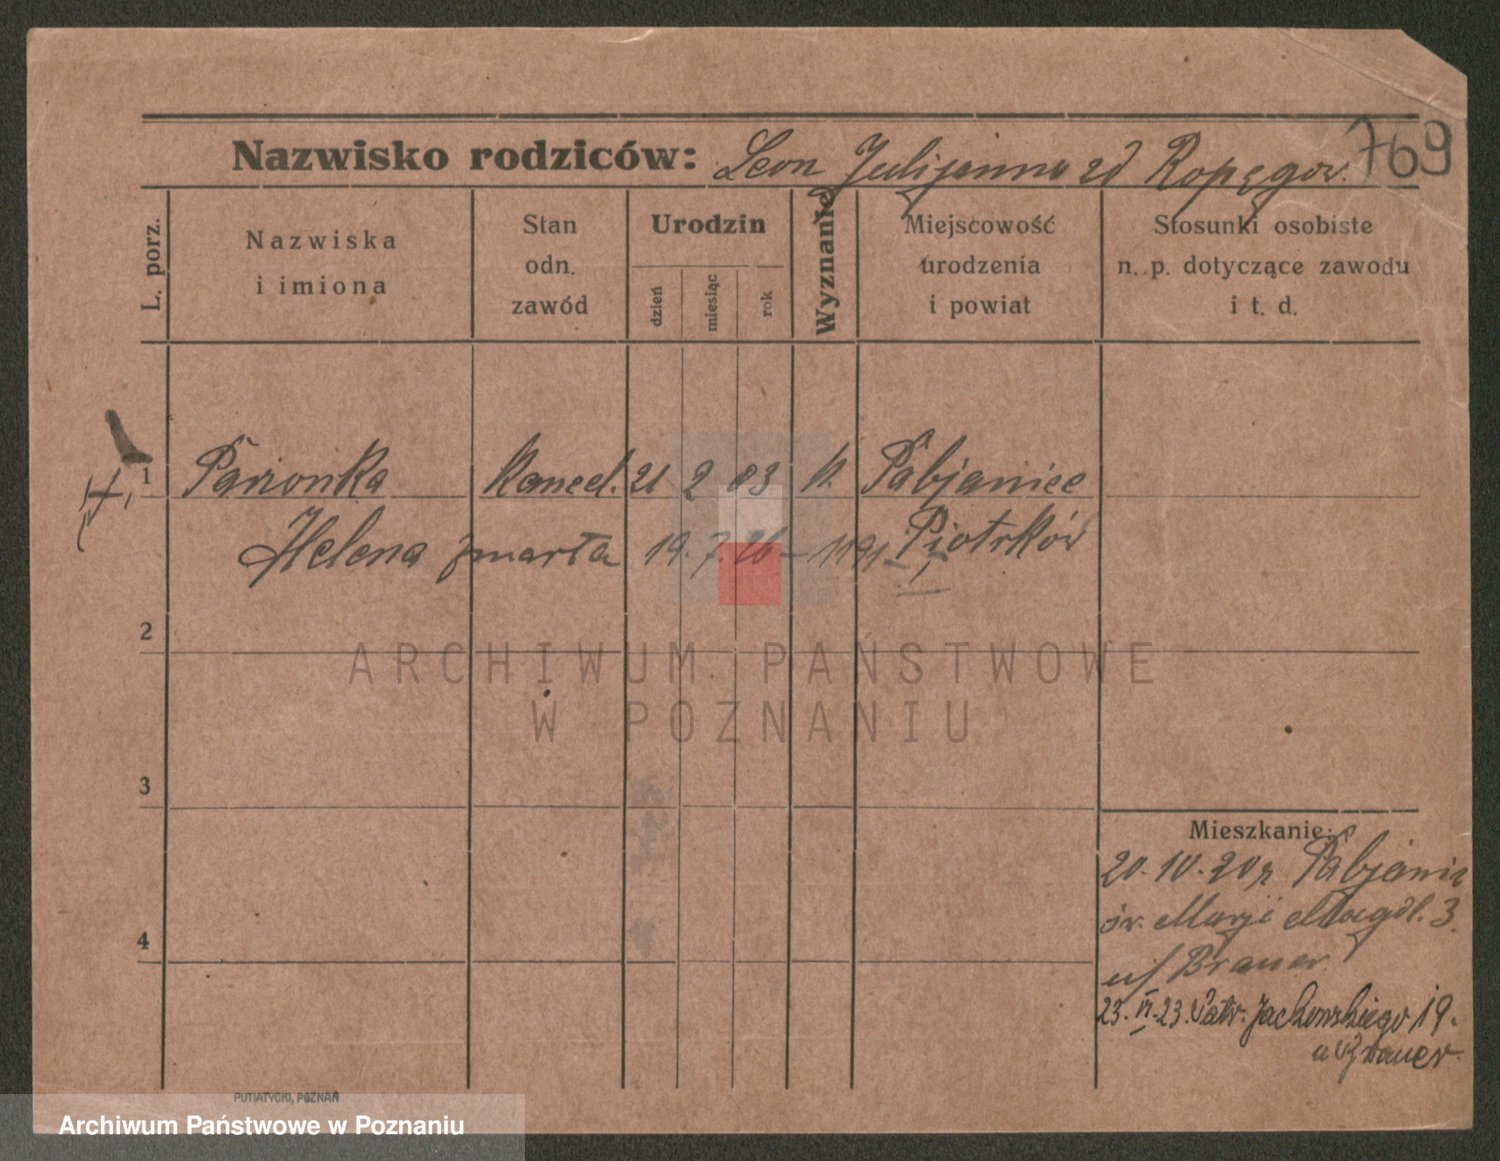 769
Nazwisko rodziców: Leon Julijanna zd Ropęgow.
L. porz.
Nazwiska
i imiona
Stan
odn.
zawód
Urodzin
dzień
miesiąc
rok
Wyznanie
Miejscowość
urodzenia
i powiat
Stosunki osobiste
n. p. dotyczące zawodu
i t. d.
1 Panionka 21 2 83 k. Pabjanice
Helena zmarła 19. 7. 26 – Piotrków
2
ARCHIWUM PAŃSTWOWE
W POZNANIU
3
4
Mieszkanie:
20. IV. 20 r Pabjanic
św. Marji Magdl. 3.
u/ Brauer
23. VI. 23. Patr. Jackowskiego 19.
u Brauer.
PUTIATYCKI, POZNAŃ
Archiwum Państwowe w Poznaniu